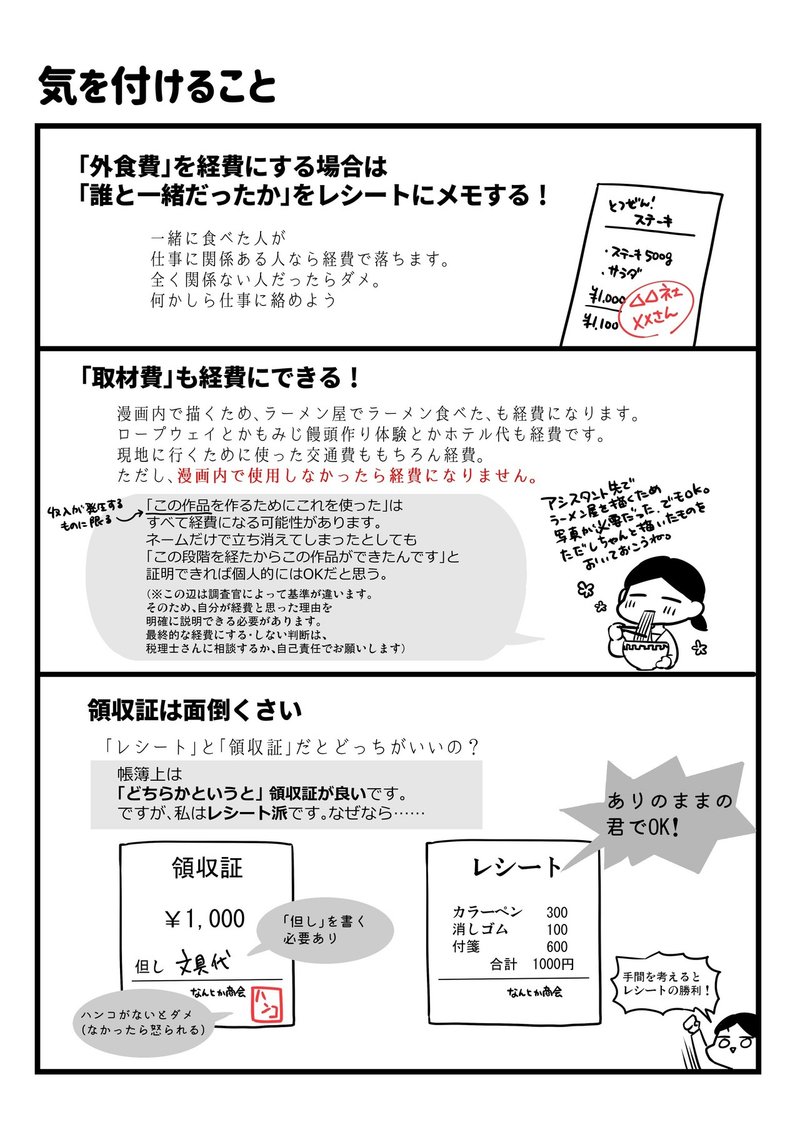 気を付けること
「外食費」を経費にする場合は
「誰と一緒だったか」をレシートにメモする！
一緒に食べた人が
仕事に関係ある人なら経費で落ちます。
全く関係ない人だったらダメ。
何かしら仕事に絡めよう
とつぜん！
ステーキ
・ステーキ500g
・サラダ
¥1,000
¥1,100
△△社
××さん
「取材費」も経費にできる！
漫画内で描くため、ラーメン屋でラーメン食べた、も経費になります。
ロープウェイとかもみじ饅頭作り体験とかホテル代も経費です。
現地に行くために使った交通費ももちろん経費。
ただし、漫画内で使用しなかったら経費になりません。
収入が発生する
ものに限る
「この作品を作るためにこれを使った」は
すべて経費になる可能性があります。
ネームだけで立ち消えてしまったとしても
「この段階を経たからこの作品ができたんです」と
証明できれば個人的にはOKだと思う。
（※この辺は調査官によって基準が違います。
そのため、自分が経費と思った理由を
明確に説明できる必要があります。
最終的な経費にする・しない判断は、
税理士さんに相談するか、自己責任でお願いします）
アシスタント先で
ラーメン屋を描くため
写真が必要だった、でもOK。
ただしちゃんと描いたものを
おいておこうね。
領収証は面倒くさい
「レシート」と「領収証」だとどっちがいいの？
帳簿上は
「どちらかというと」領収証が良いです。
ですが、私はレシート派です。なぜなら……
領収証
￥1,000
但し 文具代
なんとか商会
ハンコ
「但し」を書く
必要あり
ハンコがないとダメ
（なかったら怒られる）
レシート
カラーペン 300
消しゴム 100
付箋 600
合計 1000円
なんとか商会
ありのままの
君でOK！
手間を考えると
レシートの勝利！